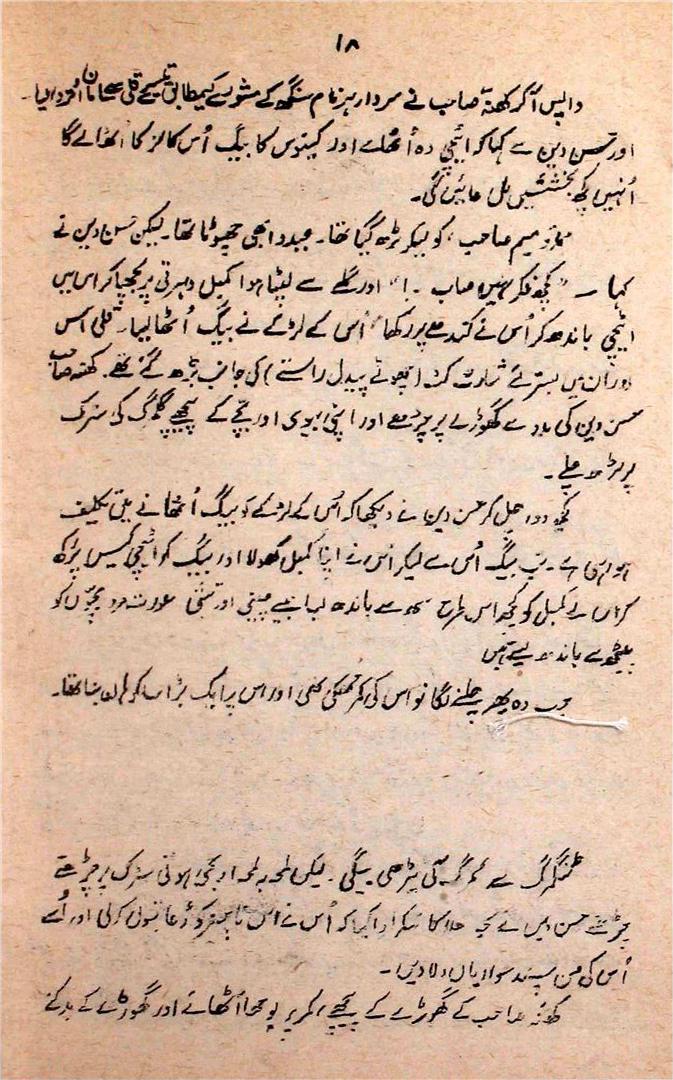 ۱۸
واپس آ کر کھنہ صاحب نے سردار ہرنام سنگھ کے مشورے کے مطابق قلی سے سامان اتروا لیا۔
اور حسن دین سے کہا کہ اٹیچی وہ اُٹھالے اور کینوس کا بیگ اُس کا لڑکا اُٹھالے گا
اُنہیں کچھ بخششیں مل جائیں گی۔
میم صاحب، کو لیکر بڑھ گیا تھا۔ عبدو ابھی چھوٹا تھا۔ لیکن حسن دین نے
کہا – "کچھ فکر نہیں صاب ۔!" اور گلے سے لپٹا ہوا کمبل دھرتی پر بچھا کر اس میں
اٹیچی باندھ کر اُس نے کندھے پر رکھا اُس کے لڑکے نے بیگ اُٹھا لیا۔ قلی اس
دوران میں بستر لئے شارٹ کٹ (چھوٹے پیدل راستے) کی جانب بڑھ گئے تھے۔ کھنہ صاحب
حسن دین کی مدد سے گھوڑے پر چڑھے اور اپنی بیوی اور بچے کے پیچھے گلمرگ کی سڑک
پر بڑھ چلے۔
کچھ دور چل کر حسن دین نے دیکھا کہ اُس کے لڑکے کو بیگ اُٹھانے میں تکلیف
ہو رہی ہے۔ تب بیگ اُس سے لیکر اس نے اپنا کمبل کھولا اور بیگ کو اٹیچی کیس پر رکھ
کر اس نے کمبل کو کچھ اس طرح سے باندھ لیا جیسے چینی اور تبتی عورت مرد بچوں کو
پیٹھ سے باندھ لیتے ہیں
جب وہ پھر چلنے لگا تو اس کی کمر جھکی تھی اور اس پر ایک بڑا سا کوہان بنا تھا۔
ٹنگمرگ سے گلمرگ کی چڑھی لیکن لمحہ بہ لمحہ اونچی ہوتی سڑک پر چڑھتے
چڑھتے حسن دین نے خدا کا شکر ادا کیا کہ اُس نے اس کی دُعا قبول کر لی اور اُسے
اُس کی من پسند سواریاں دلا دیں۔
کھنہ صاحب کے گھوڑے کے پیچھے، کمر پر بوجھا اُٹھائے اور گھوڑے کے بدکنے